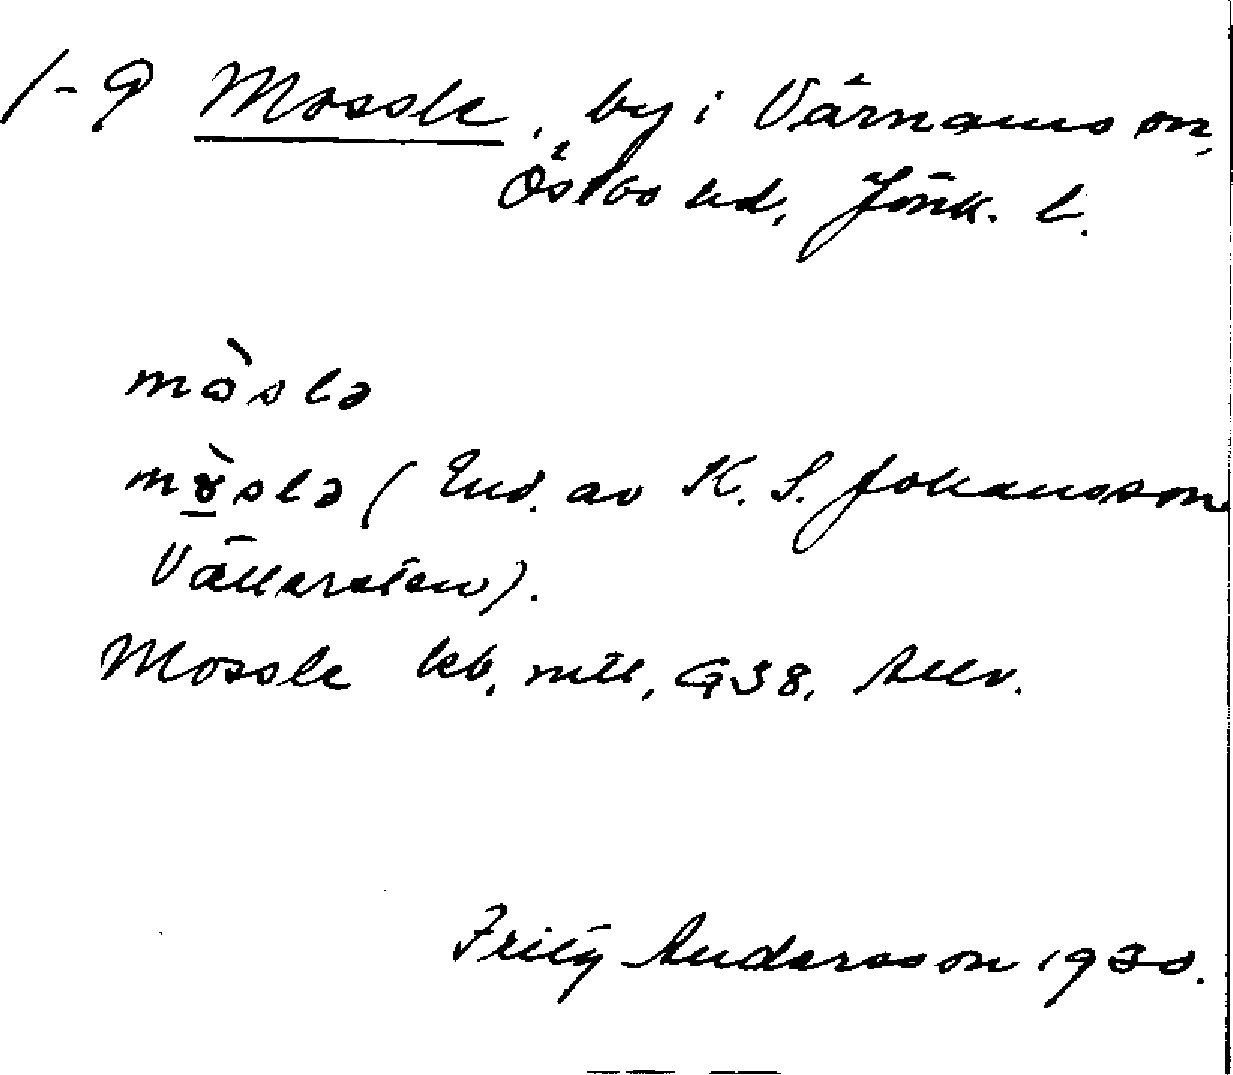 1-9 Mossle, by i Värnamo sn,
Östbo hd, Jönk. l.
mòslə
mòslə (Enl. av K. S. Johansson
Mossle kb, mtl, G38,
Fritz Andersson 1930.